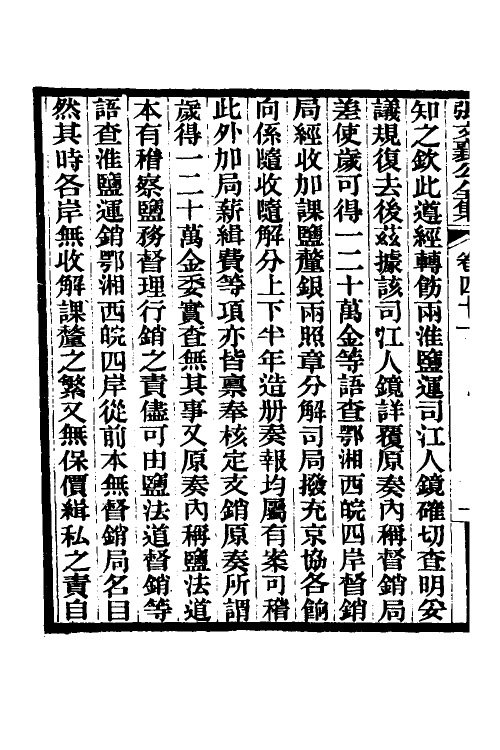 張文襄公全集 卷四十一 一
知之欽此遵經轉飭兩淮鹽運司江人鏡確切查明妥
議規復去後茲據該司江人鏡詳覆原奏內稱督銷局
差使歲可得一二十萬金等語查鄂湘西皖四岸督銷
局經收加課鹽釐銀兩照章分解司局撥充京協各餉
向係隨收隨解分上下半年造册奏報均屬有案可稽
此外加局薪緝費等項亦皆禀奉核定支銷原奏所謂
歲得一二十萬金委實查無其事又原奏內稱鹽法道
本有稽察鹽務督理行銷之責儘可由鹽法道督銷等
語查淮鹽運銷鄂湘西皖四岸從前本無督銷局名目
然其時各岸無收解課釐之繁又無保價緝私之責自